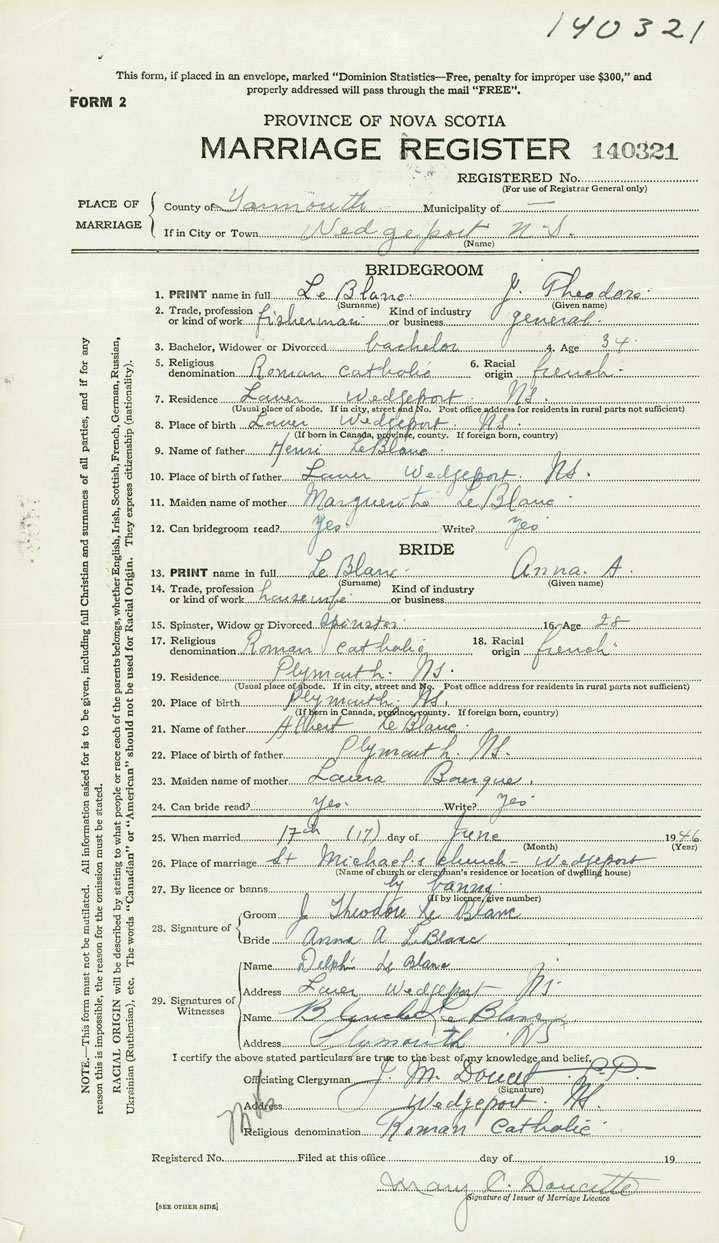 140321
This form, if placed in an envelope, marked "Dominion Statistics—Free, penalty for improper use $300," and
properly addressed will pass through the mail "FREE".
FORM 2
PROVINCE OF NOVA SCOTIA
MARRIAGE REGISTER 140321
REGISTERED No.
(For use of Registrar General only)
PLACE OF MARRIAGE
County of Yarmouth Municipality of —
If in City or Town Wedgeport N.S.
(Name)
BRIDEGROOM
1. PRINT name in full Le Blanc J. Theodore
(Surname) (Given name)
2. Trade, profession or kind of work fisherman Kind of industry or business general
3. Bachelor, Widower or Divorced bachelor 4. Age 34
5. Religious denomination Roman Catholic 6. Racial origin french
7. Residence Lower Wedgeport NS.
(Usual place of abode. If in city, street and No. Post office address for residents in rural parts not sufficient)
8. Place of birth Lower Wedgeport NS.
(If born in Canada, province, county. If foreign born, country)
9. Name of father Henri LeBlanc
10. Place of birth of father Lower Wedgeport NS.
11. Maiden name of mother Marguerite Le Blanc
12. Can bridegroom read? yes Write? yes
BRIDE
13. PRINT name in full Le Blanc Anna. A.
(Surname) (Given name)
14. Trade, profession or kind of work housewife Kind of industry or business
15. Spinster, Widow or Divorced Spinster 16. Age 28
17. Religious denomination Roman Catholic 18. Racial origin french
19. Residence Plymouth NS.
(Usual place of abode. If in city, street and No. Post office address for residents in rural parts not sufficient)
20. Place of birth Plymouth NS.
(If born in Canada, province, county. If foreign born, country)
21. Name of father Albert Le Blanc
22. Place of birth of father Plymouth NS.
23. Maiden name of mother Laura Bourque
24. Can bride read? yes Write? yes
25. When married 17th (17) day of June 1946
(Month) (Year)
26. Place of marriage St Michael's church — Wedgeport
(Name of church or clergyman's residence or location of dwelling house)
27. By licence or banns by banns
(If by licence, give number)
28. Signature of
Groom J Theodore Le Blanc
Bride Anna A LeBlanc
29. Signatures of Witnesses
Name Delphi Le Blanc
Address Lower Wedgeport NS.
Name Blanche Le Blanc
Address Plymouth NS
I certify the above stated particulars are true to the best of my knowledge and belief.
Officiating Clergyman J. M. Doucet P.P.
(Signature)
Address Wedgeport NS.
Religious denomination Roman Catholic
Registered No. Filed at this office day of 19
Mary C. Doucette
Signature of Issuer of Marriage Licence
[SEE OTHER SIDE]
NOTE.—This form must not be mutilated. All information asked for is to be given, including full Christian and surnames of all parties, and if for any
reason this is impossible, the reason for the omission must be stated.
RACIAL ORIGIN will be described by stating to what people or race each of the parents belongs, whether English, Irish, Scottish, French, German, Russian,
Ukrainian (Ruthenian), etc. The words "Canadian" or "American" should not be used for Racial Origin. They express citizenship (nationality).